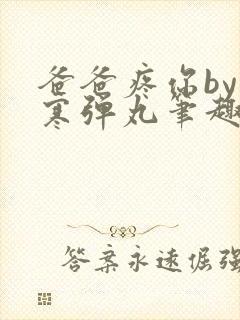 爸爸疼你by
寒弹丸笔趣
答案永远倔强